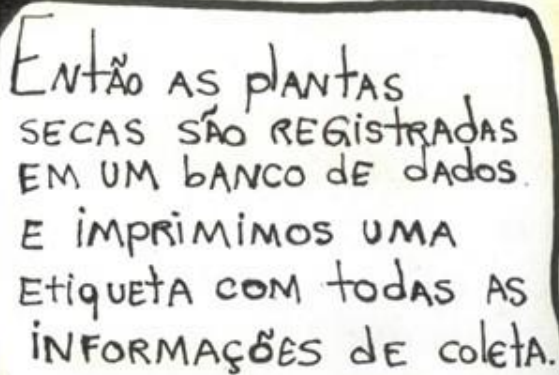 Então as plantas
secas são registradas
em um banco de dados.
E imprimimos uma
etiqueta com todas as
informações de coleta.